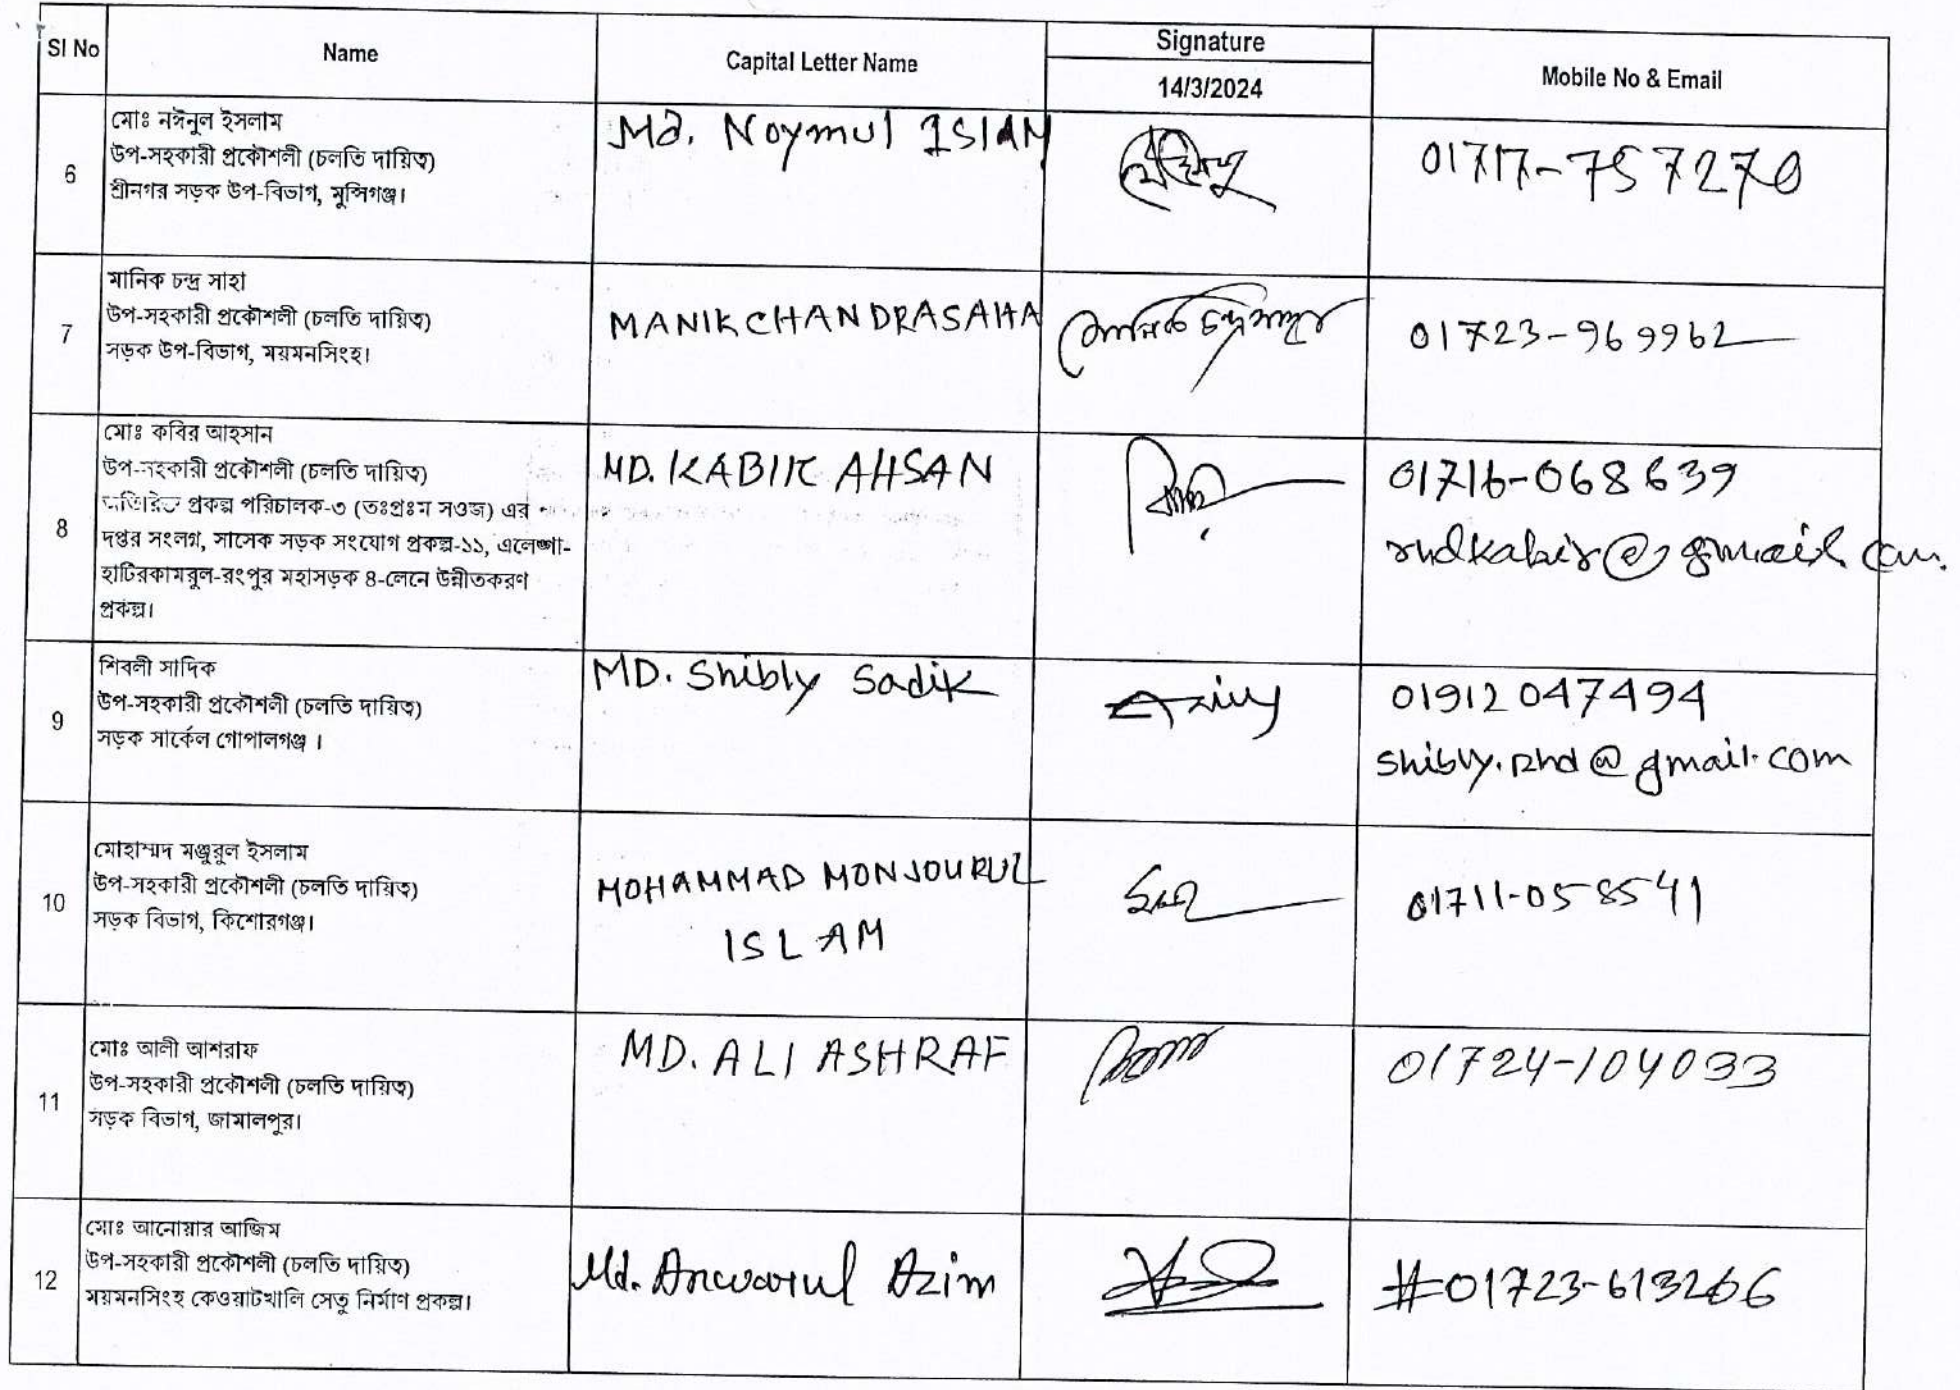 Sl No Name Capital Letter Name Signature Mobile No & Email
14/3/2024
6
মোঃ নঈনুল ইসলাম
উপ-সহকারী প্রকৌশলী (চলতি দায়িত্ব)
শ্রীনগর সড়ক উপ-বিভাগ, মুন্সিগঞ্জ।
Md. Noymul ISLAM
01717-757270
7
মানিক চন্দ্র সাহা
উপ-সহকারী প্রকৌশলী (চলতি দায়িত্ব)
সড়ক উপ-বিভাগ, ময়মনসিংহ।
MANIK CHANDRA SAHA
01723-969962
8
মোঃ কবির আহসান
উপ-সহকারী প্রকৌশলী (চলতি দায়িত্ব)
অতিরিক্ত প্রকল্প পরিচালক-৩ (তঃপ্রঃম সওজ) এর
দপ্তর সংলগ্ন, সাসেক সড়ক সংযোগ প্রকল্প-১১, এলেঙ্গা-
হাটিরকামরুল-রংপুর মহাসড়ক ৪-লেনে উন্নীতকরণ
প্রকল্প।
MD. KABIR AHSAN
01716-068639
rhdkabir@gmail.com.
9
শিবলী সাদিক
উপ-সহকারী প্রকৌশলী (চলতি দায়িত্ব)
সড়ক সার্কেল গোপালগঞ্জ ।
MD. Shibly Sadik
01912 047494
shibly.rhd@gmail.com
10
মোহাম্মদ মঞ্জুরুল ইসলাম
উপ-সহকারী প্রকৌশলী (চলতি দায়িত্ব)
সড়ক বিভাগ, কিশোরগঞ্জ।
MOHAMMAD MONJOURUL
ISLAM
01711-058541
11
মোঃ আলী আশরাফ
উপ-সহকারী প্রকৌশলী (চলতি দায়িত্ব)
সড়ক বিভাগ, জামালপুর।
MD. ALI ASHRAF
01724-104033
12
মোঃ আনোয়ার আজিম
উপ-সহকারী প্রকৌশলী (চলতি দায়িত্ব)
ময়মনসিংহ কেওয়াটখালি সেতু নির্মাণ প্রকল্প।
Md. Anwarul Azim
#01723-613266